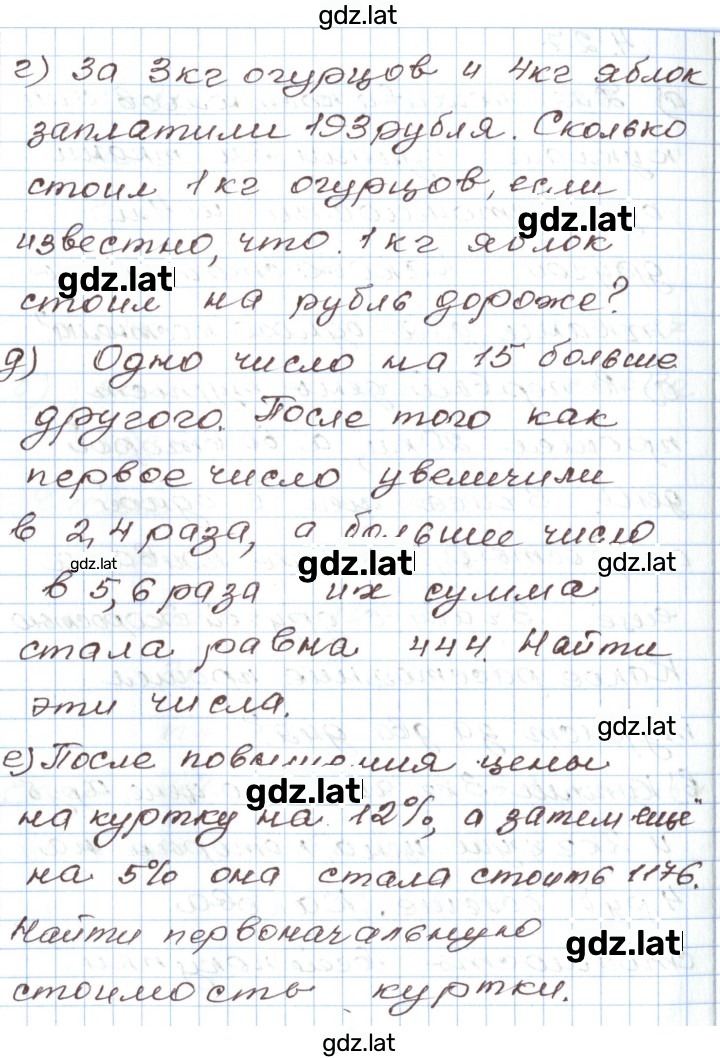 gdz.lat
г) За 3кг огурцов и 4кг яблок
заплатили 193рубля. Сколько
стоил 1кг огурцов, если
gdz.lat
известно, что 1кг яблок
gdz.lat
стоил на рубль дороже?
д) Одно число на 15 больше
другого. После того как
первое число увеличили
в 2,4 раза, а большее число
gdz.lat gdz.lat gdz.lat
в 5,6 раза их сумма
стала равна 444. Найти
эти числа.
gdz.lat
е) После повышения цены
gdz.lat
на куртку на 12%, а затем ещё
на 5% она стала стоить 1176.
Найти первоначальную
gdz.lat
стоимость куртки.
gdz.lat